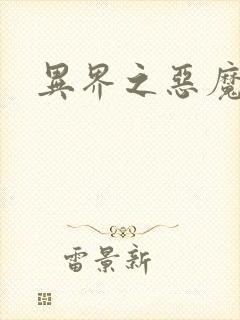 異界之惡魔
雷景新